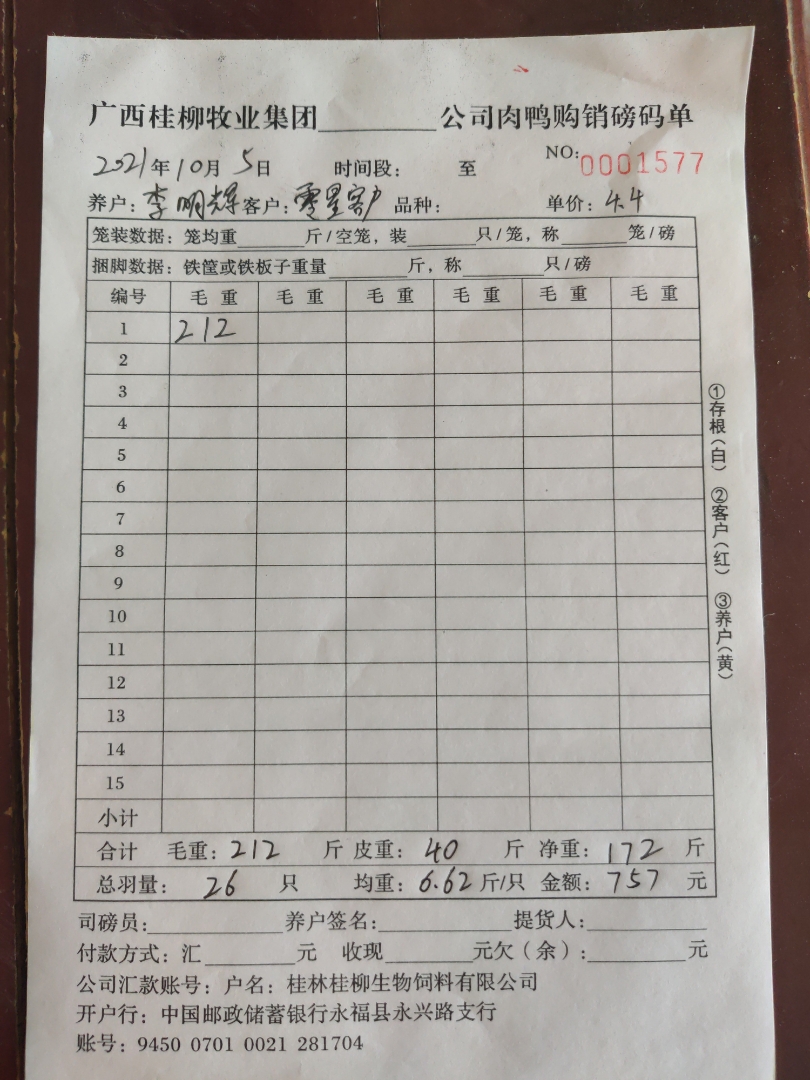 广西桂柳牧业集团________公司肉鸭购销磅码单
2021年10月5日 时间段: 至 NO:0001577
养户:李明辉 客户:零星客户 品种: 单价:4.4
笼装数据:笼均重______斤/空笼,装______只/笼,称______笼/磅
捆脚数据:铁筐或铁板子重量_______斤,称_______只/磅
编号 毛重 毛重 毛重 毛重 毛重 毛重
1 212
2
3
4
5
6
7
8
9
10
11
12
13
14
15
小计
合计 毛重:212 斤 皮重:40 斤 净重:172 斤
总羽量:26 只 均重:6.62斤/只 金额:757 元
①存根(白) ②客户(红) ③养户(黄)
司磅员:__________养户签名:__________提货人:__________
付款方式:汇_______元 收现_______元欠(余):_______元
公司汇款账号:户名:桂林桂柳生物饲料有限公司
开户行:中国邮政储蓄银行永福县永兴路支行
账号:9450 0701 0021 281704